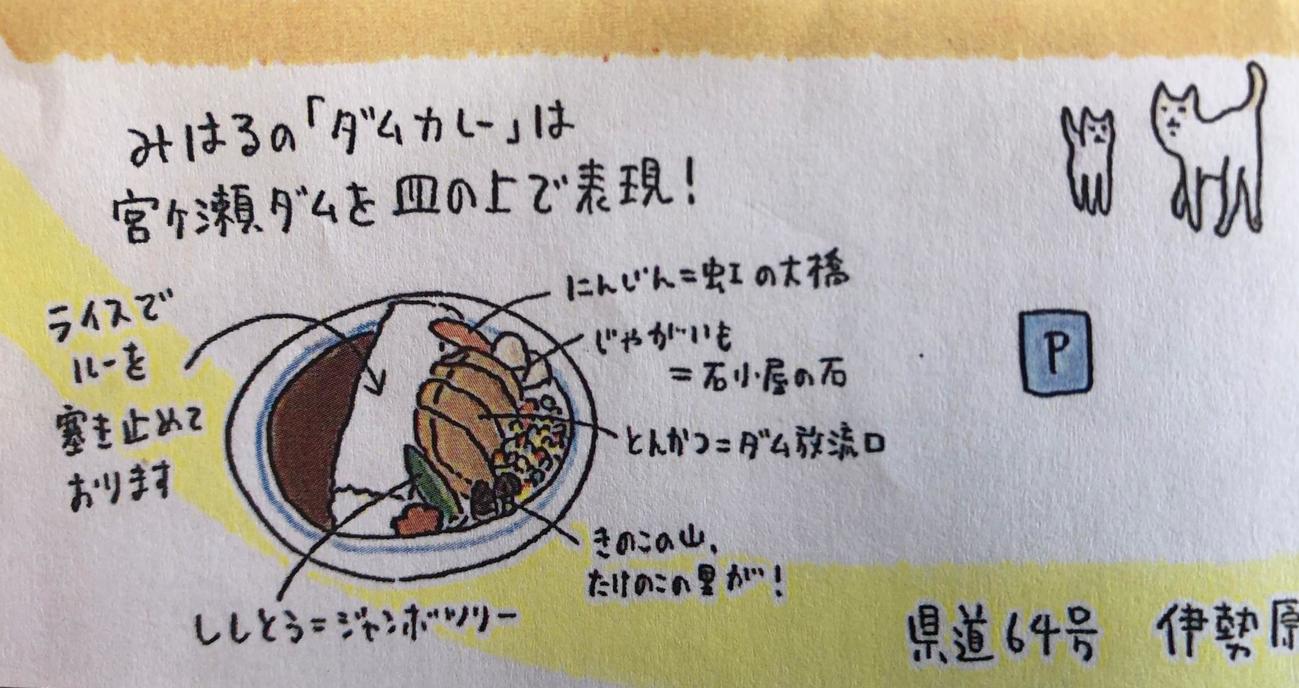 みはるの「ダムカレー」は
宮ヶ瀬ダムを皿の上で表現！
ライスで
ルーを
塞き止めて
おります
にんじん＝虹の大橋
じゃがいも
＝石小屋の石
とんかつ＝ダム放流口
きのこの山、
たけのこの里が！
ししとう＝ジャンボツリー
P
県道64号 伊勢原